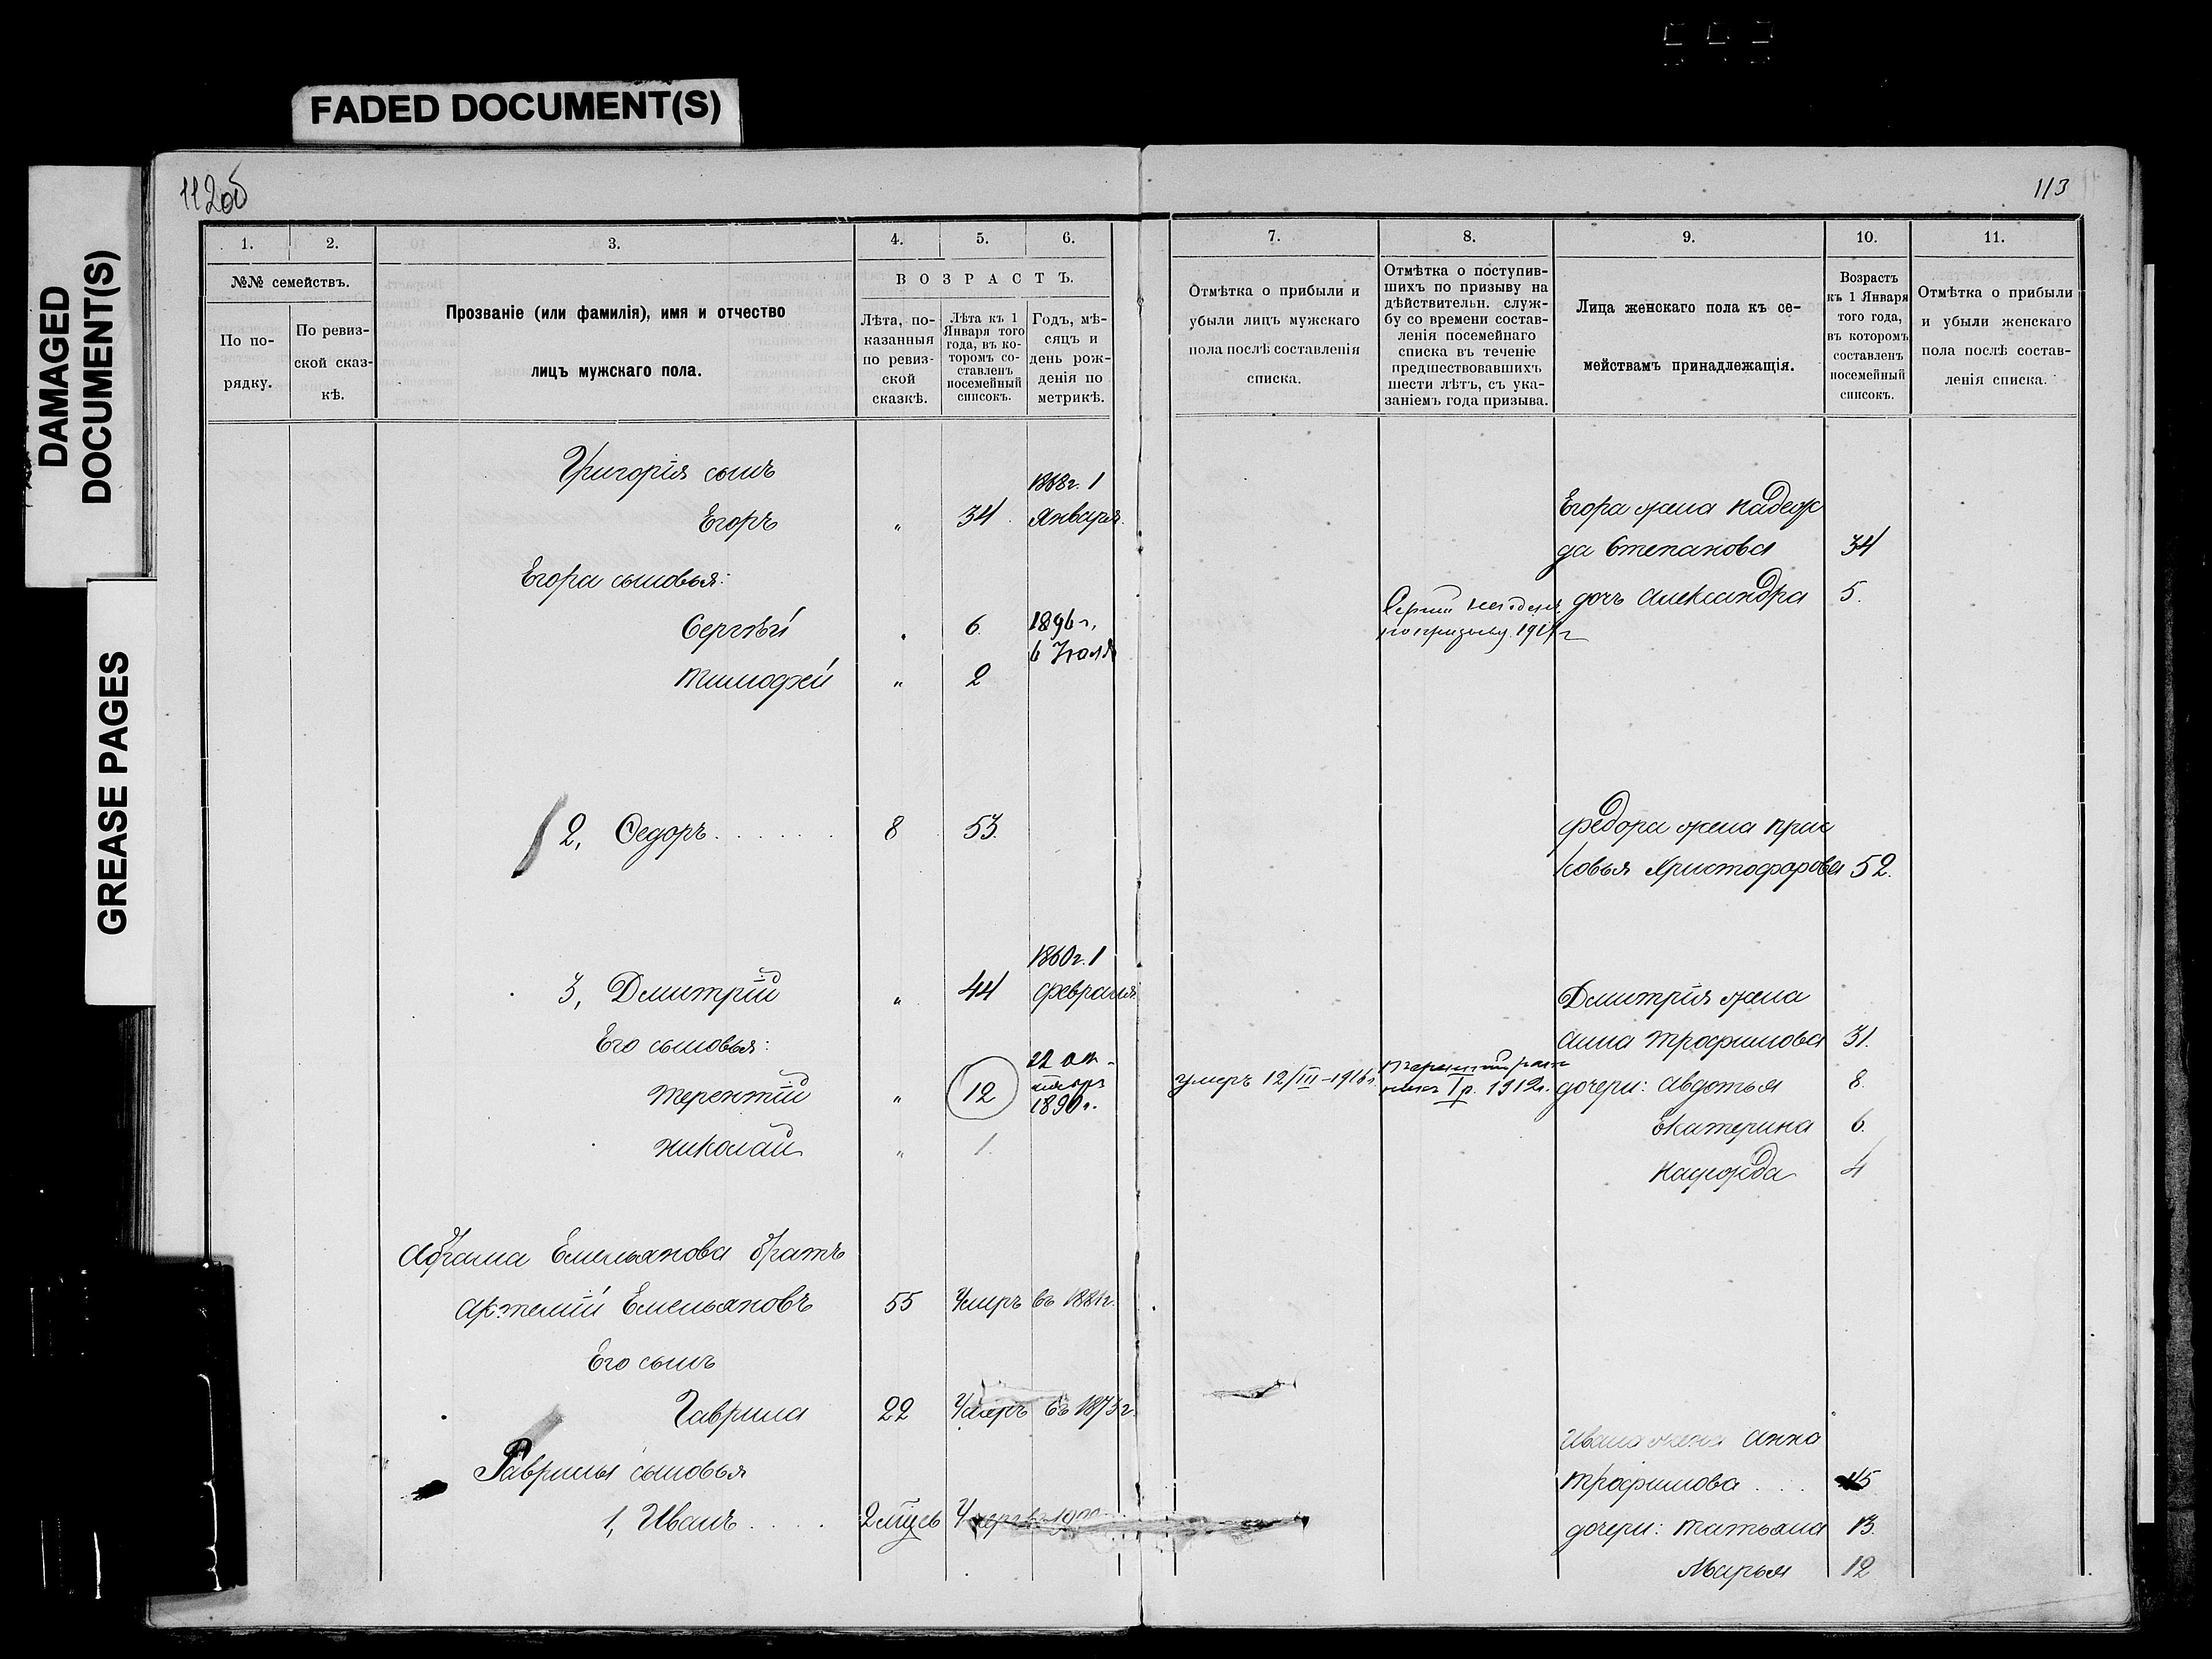 FADED DOCUMENT(S)
DAMAGED
DOCUMENT(S)
GREASE PAGES
112об
113
1.
2.
3.
4.
5.
6.
7.
8.
9.
10.
11.
№№ семействъ.
По по-
рядку.
По ревиз-
ской сказ-
кѣ.
Прозваніе (или фамилія), имя и отчество
лицъ мужскаго пола.
ВОЗРАСТЪ.
Лѣта, по-
казанныя
по ревиз-
ской
сказкѣ.
Лѣта къ 1
Января того
года, въ ко-
торомъ со-
ставленъ
посемейный
списокъ.
Годъ, мѣ-
сяцъ и
день рож-
денія по
метрикѣ.
Отмѣтка о прибыли и
убыли лицъ мужскаго
пола послѣ составленія
списка.
Отмѣтка о поступив-
шихъ по призыву на
дѣйствительн. служ-
бу со времени состав-
ленія посемейнаго
списка въ теченіе
предшествовавшихъ
шести лѣтъ, съ ука-
заніемъ года призыва.
Лица женскаго пола къ се-
мействамъ принадлежащія.
Возрастъ
къ 1 Января
того года,
въ которомъ
составленъ
посемейный
списокъ.
Отмѣтка о прибыли
и убыли женскаго
пола послѣ состав-
ленія списка.
Григорія сынъ
Егоръ " 34 1868г. 1 Января.
Егора жена Надеж
да Степанова 34
Егора сыновья:
дочь Александра 5.
Сергѣй " 6. 1896г. 6 Іюля
Сергѣй
по призыву 1917г
Тимофей " 2
2, Федоръ . . . . . . 8 53.
Федора жена Прас
ковья Христофорова 52.
3, Дмитрій " 44 1860г. 1 февраля
Дмитрія жена
Анна Трофимова 31.
Его сыновья:
Терентій " 12 22 октября 1890г.
умеръ 12/III-1916г.
Терентій рат
никъ I р. 1912г.
дочери: Авдотья 8.
Екатерина 6.
Николай " 1.
Надежда 4
Абрама Емельянова братъ
Артемій Емельяновъ 55 Умеръ въ 1881г.
Его сынъ
Гаврила 22 Умеръ въ 1873г.
Гаврилы сыновья
Ивана жена Анна
Трофимова . . . 45
1, Иванъ . . . . 2 мѣсъ Умеръ въ
дочери: Татьяна 13.
Марья 12